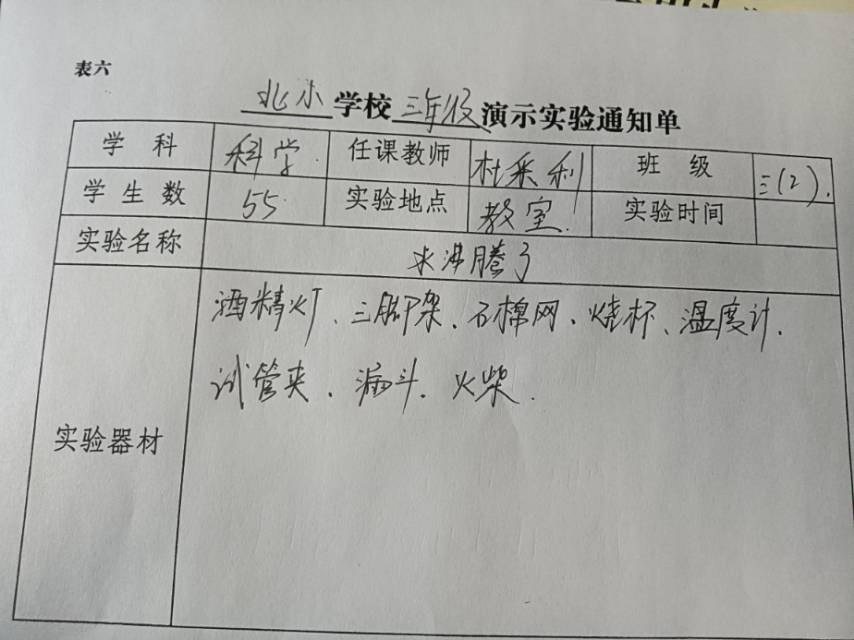 表六
北小学校三年级演示实验通知单
学 科 科学 任课教师 杜采利 班 级 三(2).
学 生 数 55 实验地点 教室. 实验时间
实验名称 水沸腾了
酒精灯、三脚架、石棉网、烧杯、温度计.
试管夹、漏斗.火柴.
实验器材